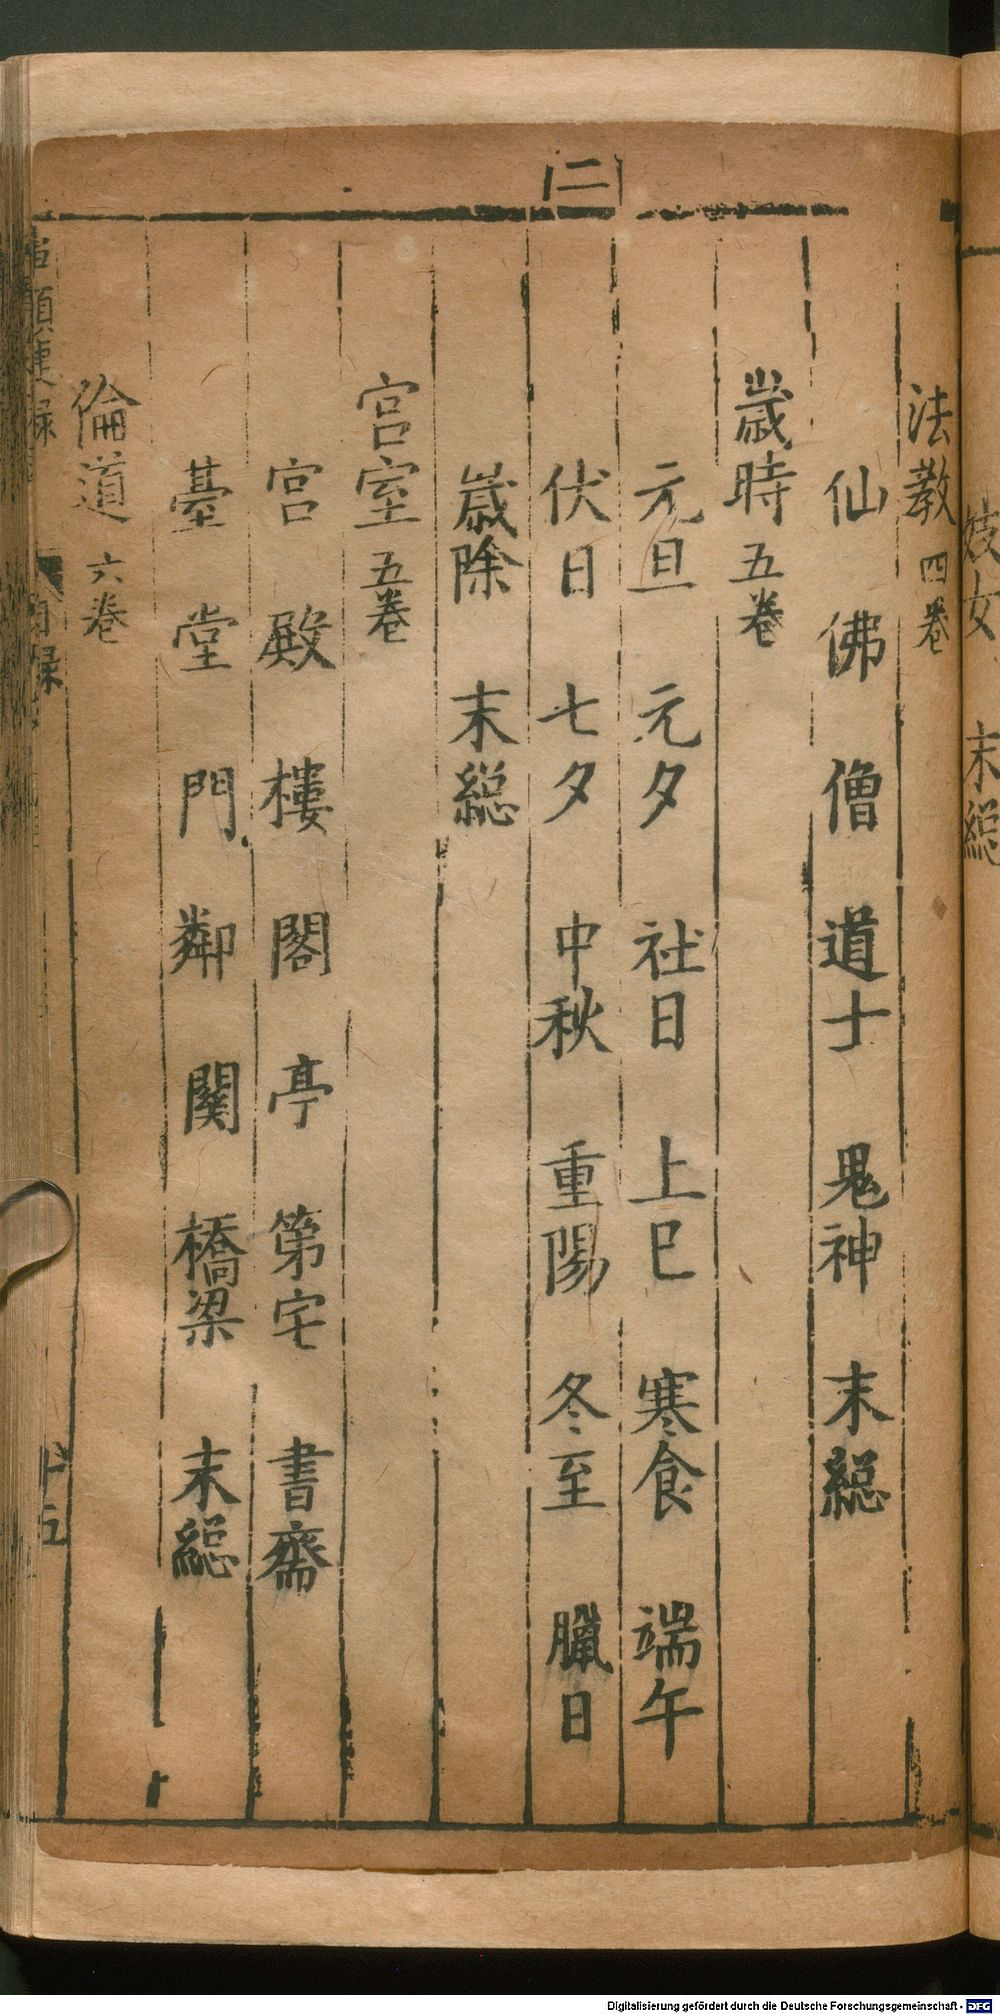 二
妓女　末緫
法教　四卷
仙　佛　僧　道士　鬼神　末緫
歲時　五卷
元旦　元夕　社日　上巳　寒食　端午
伏日　七夕　中秋　重陽　冬至　臘日
歲除　末緫
宮室　五卷
宮　殿　樓　閣　亭　第宅　書齋
臺　堂　門　鄰　關　橋梁　末緫
倫道　六卷
目錄
十五
Digitalisierung gefördert durch die Deutsche Forschungsgemeinschaft - DFG